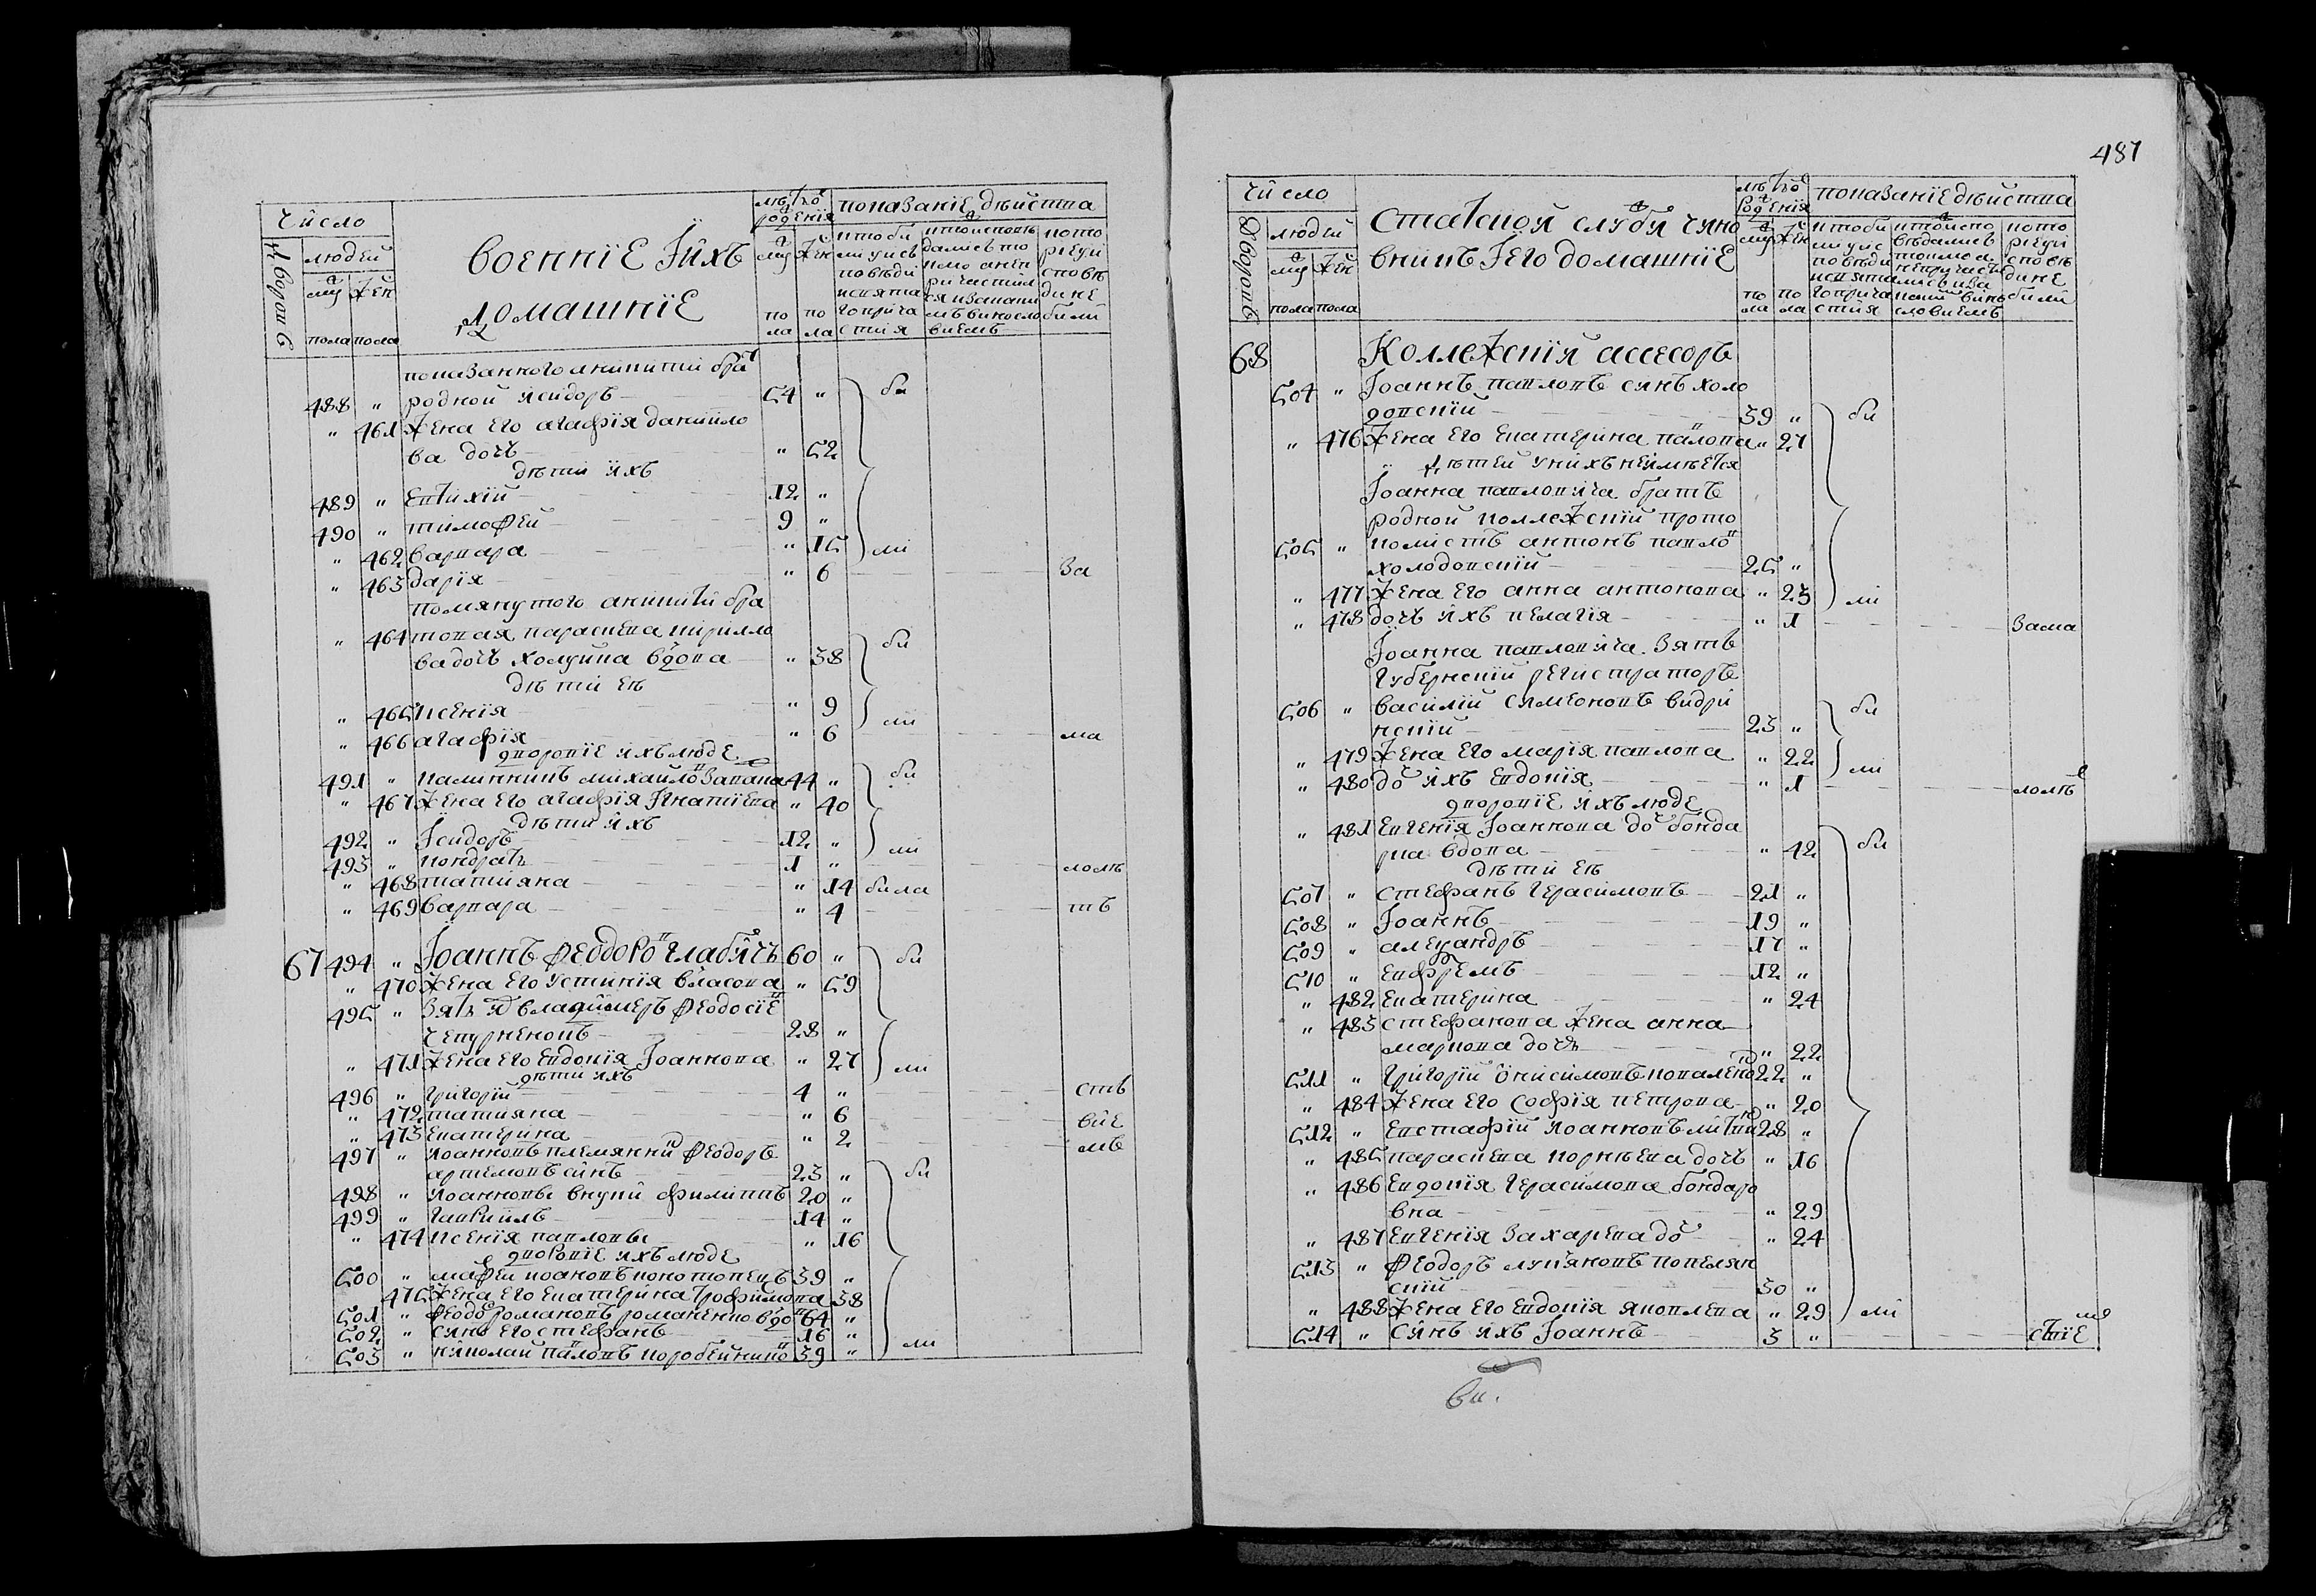 число
людей
муж жен
дворовъ
пола пола
военніе Iихъ
домашніе
лѣтъ
рожденія
муж жен
пола пола
показаніе дѣиства
показанного аникити бра
488 " родной исидоръ 54 " би
" 461 жена его агафія данiило
ва дочъ " 52
дѣти ихъ
489 " евтихій 12 "
490 " тимофей 9 "
" 462 варвара " 15 ли
" 463 дарія " 6 за
помянутого аникити бра
" 464 товая параскева кирилло
ва дочъ холунка вдова " 38 би
дѣти еѣ
" 465 ксенія " 9 ли
" 466 агафія " 6 ма
дворовіе ихъ люде
491 " 44 " би
" 467 жена его агафія Iгнатіева " 40
дѣти ихъ
492 " Iсидоръ 12 " ли
493 " кондратъ 1 " ломъ
" 468 татияна " 14 била
" 469 варвара " 4 тъ
67 494 " Iоаннъ феодоров глабучъ 60 " би
" 470 жена его устинія власова " 59
495 " зять владимеръ феодосіев
чепурненковъ 28 "
" 471 жена его евдокія Iоаннова " 27 ли
дѣти ихъ
496 " григорій 4 " стъ
" 472 татияна " 6 віе
" 473 екатерина " 2 мъ
497 " иоанновъ племянник феодоръ
артемовъ синъ 23 " би
498 " иоанновы внуки филиппъ 20 "
499 " гавриилъ 14 "
" 474 ксенія павловы " 16
дворовіе ихъ люде
500 " мафей иоановъ конотопецъ 39 "
475 жена его екатерина трофимова 38
501 " феодор романовъ романенко вдов 64 "
502 " синъ его стефанъ 16 "
503 " николай павловъ коробейников 39 " ли
487
число
людей
муж жен
дворовъ
пола пола
статской служби чино
вникъ Iего домашніе
лѣтъ
рожденія
муж жен
пола пола
показаніе дѣиства
68 Коллежскій ассесоръ
504 " Iоаннъ павловъ синъ холо
довскій 39 " би
" 476 жена его екатерина павлова " 27
" дѣтей у нихъ неимѣется
Iоанна павловича братъ
родной коллежскій прото
505 " колистъ антонъ павлов
холодовскій 25 "
" 477 жена его анна антонова " 23 ли
" 478 дочъ ихъ пелагія " 1 зама
Iоанна павловича зять
губернскій регистраторъ
506 " василій симеоновъ видри
нскій 23 " би
" 479 жена его марія павлова " 22 ли
" 480 доч ихъ евдокія " 1 ломъ
дворовіе ихъ люде
" 481 евгенія Iоаннова доч бонда
рка вдова " 42 би
дѣти еѣ
507 " стефанъ герасимовъ 21 "
508 " Iоаннъ 19 "
509 " александръ 17 "
510 " евфремъ 12 "
" 482 екатерина " 24
" 483 стефанова жена анна
маркова дочъ " 22
511 " григорій онисимовъ коваленко 22 "
" 484 жена его софія петрова " 20
512 " евстафій иоанновъ 28 "
" 485 параскева корнѣева дочъ " 16
" 486 евдокія герасимова бондаро
вна " 29
" 487 евгенія захарева доч " 24
513 " феодоръ лукяновъ попелян
скій 30 "
" 488 жена его евдокія яковлева " 29 ли
514 " синъ ихъ Iоаннъ 3 " стіе